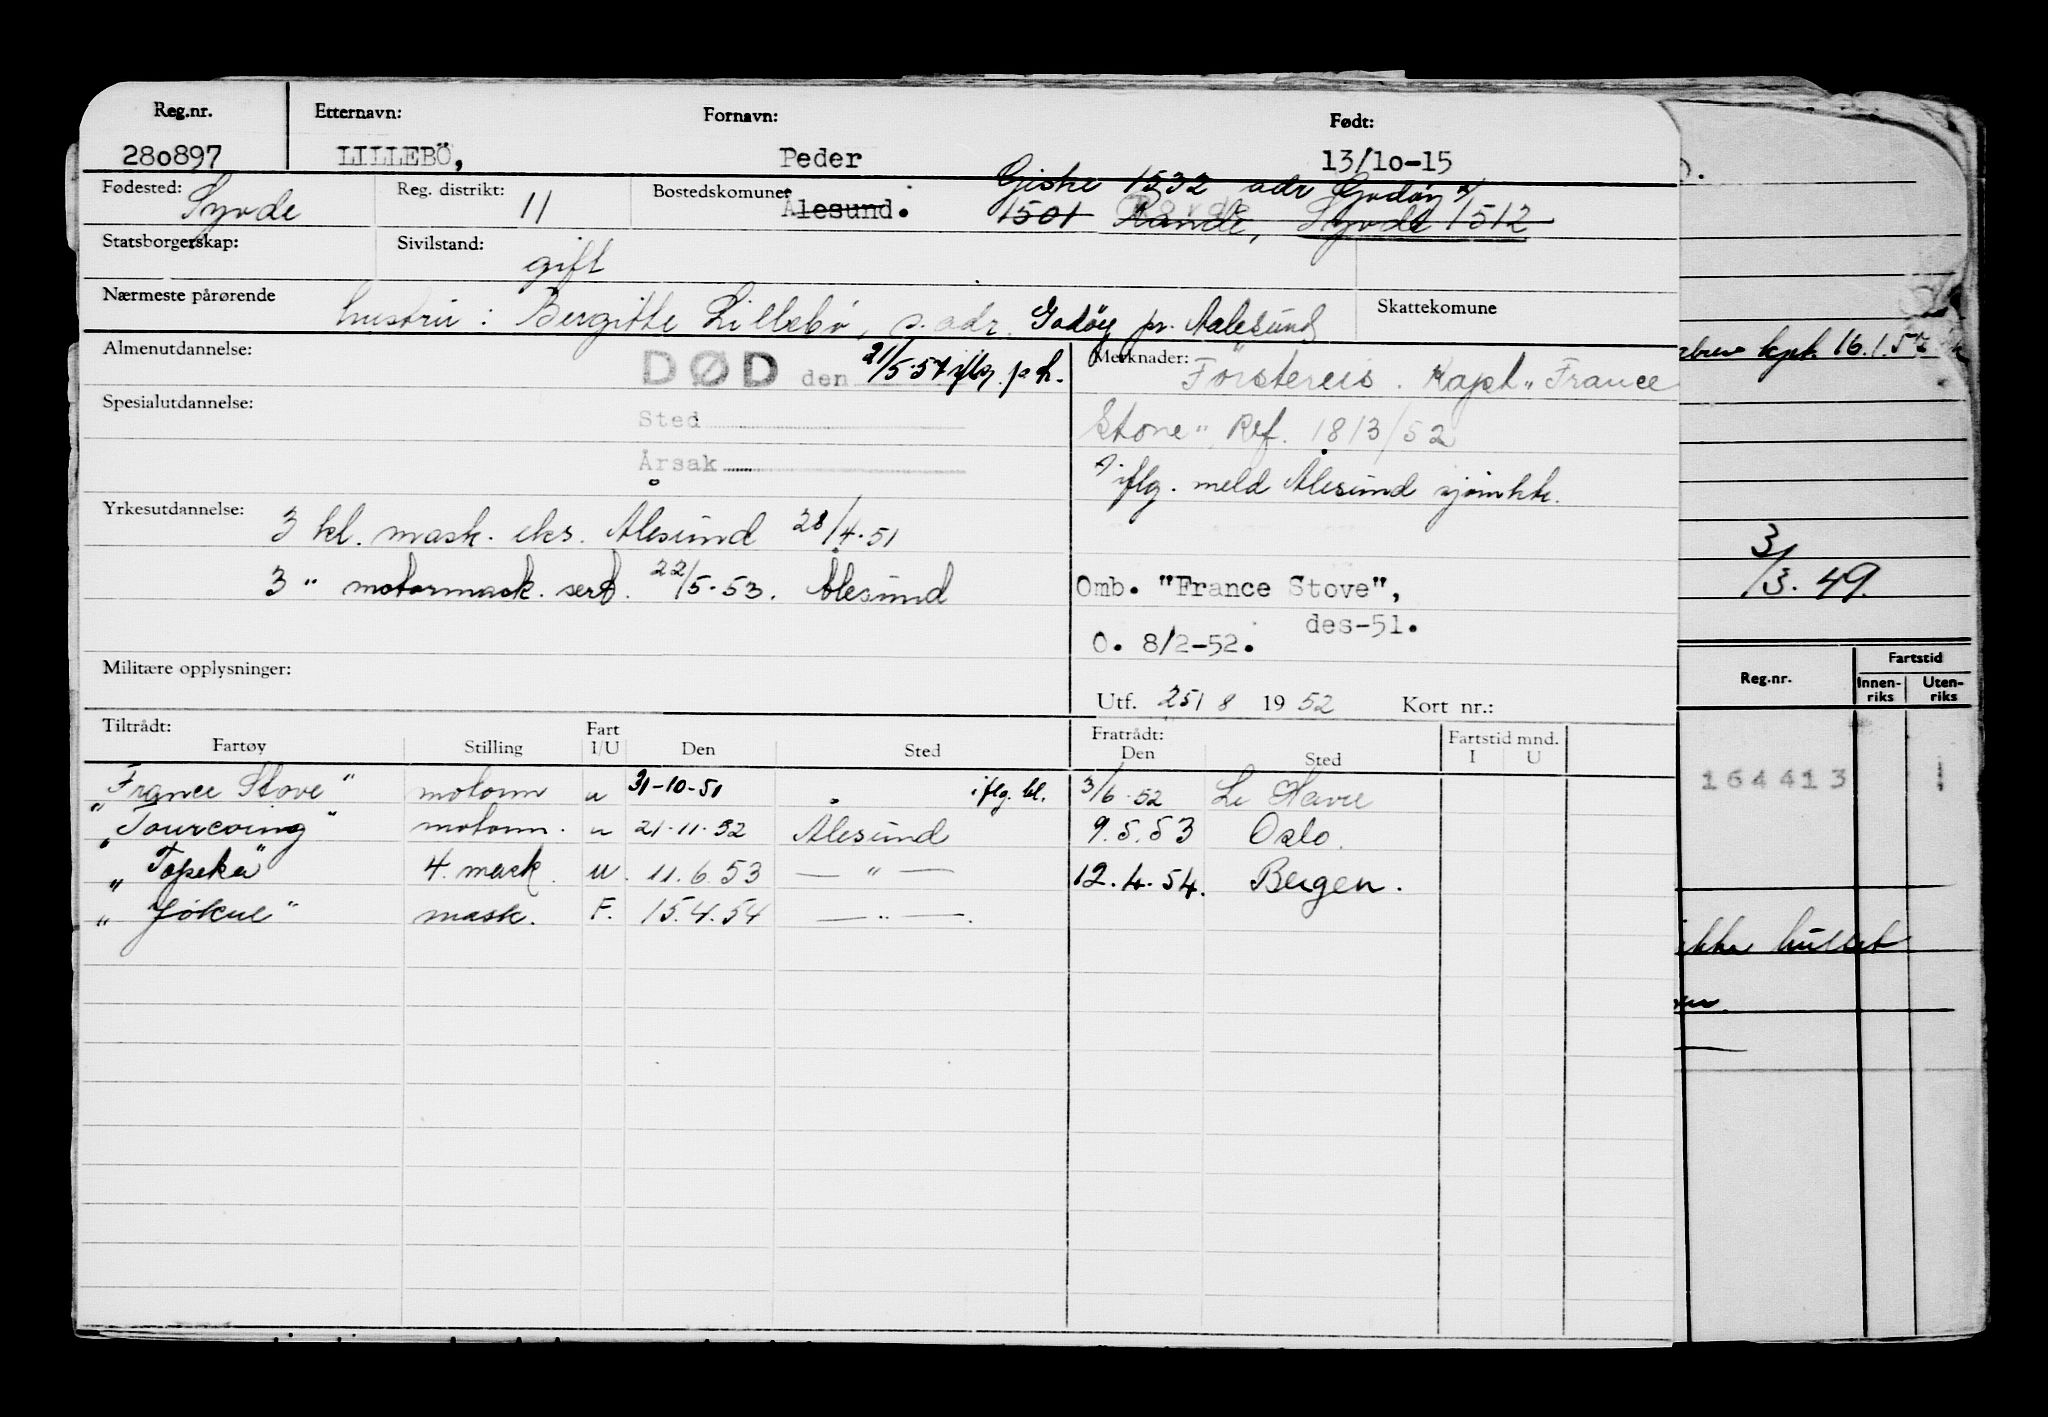 Reg.nr. Etternavn: Fornavn: Født:
280897 LILLEBÖ, Peder 13/10-15
Giske 1532 adr Godøy x/
Fødested: Syvde Reg. distrikt: 11 Bostedskomune: Ålesund. 1501 Rande, Syvde 1512
Statsborgerskap: Sivilstand: gift
Nærmeste pårørende hustru : Bergitte Lillebö, s. adr. Godøy pr. Aalesund Skattekomune
Almenutdannelse: DØD den 21/5.57 iflg.
Merknader: Förstereis. Kapt „France
Spesialutdannelse: Sted
Stone" Ref. 18/3/52
Årsak
iflg. meld Ålesund sjømktr.
Yrkesutdannelse: 3 kl. mask. eks. Ålesund 28/4.51
3 " motormask. sert. 22/5-53. Ålesund
Omb. "France Stove",
des-51.
O. 8/2-52.
Militære opplysninger:
Utf. 25/8 1952 Kort nr.:
Tiltrådt: Fart Fratrådt: Fartstid mnd.
Fartøy Stilling I/U Den Sted Den Sted I U
„France Stove" motorm u 31-10-51 iflg. bl. 3/6-52 Le Havre
„Tourcoing" motorm. u 21-11-52 Ålesund 9.5.53 Oslo.
„Topeka" 4. mask. u. 11.6.53 — " — 12.4.54. Bergen.
„Jøkul" mask. F. 15.4.54 — " —.
kpt. 16.1.57
3/3.49.
Reg.nr. Fartstid
Innen-riks Uten-riks
164413 1
ikke hullet